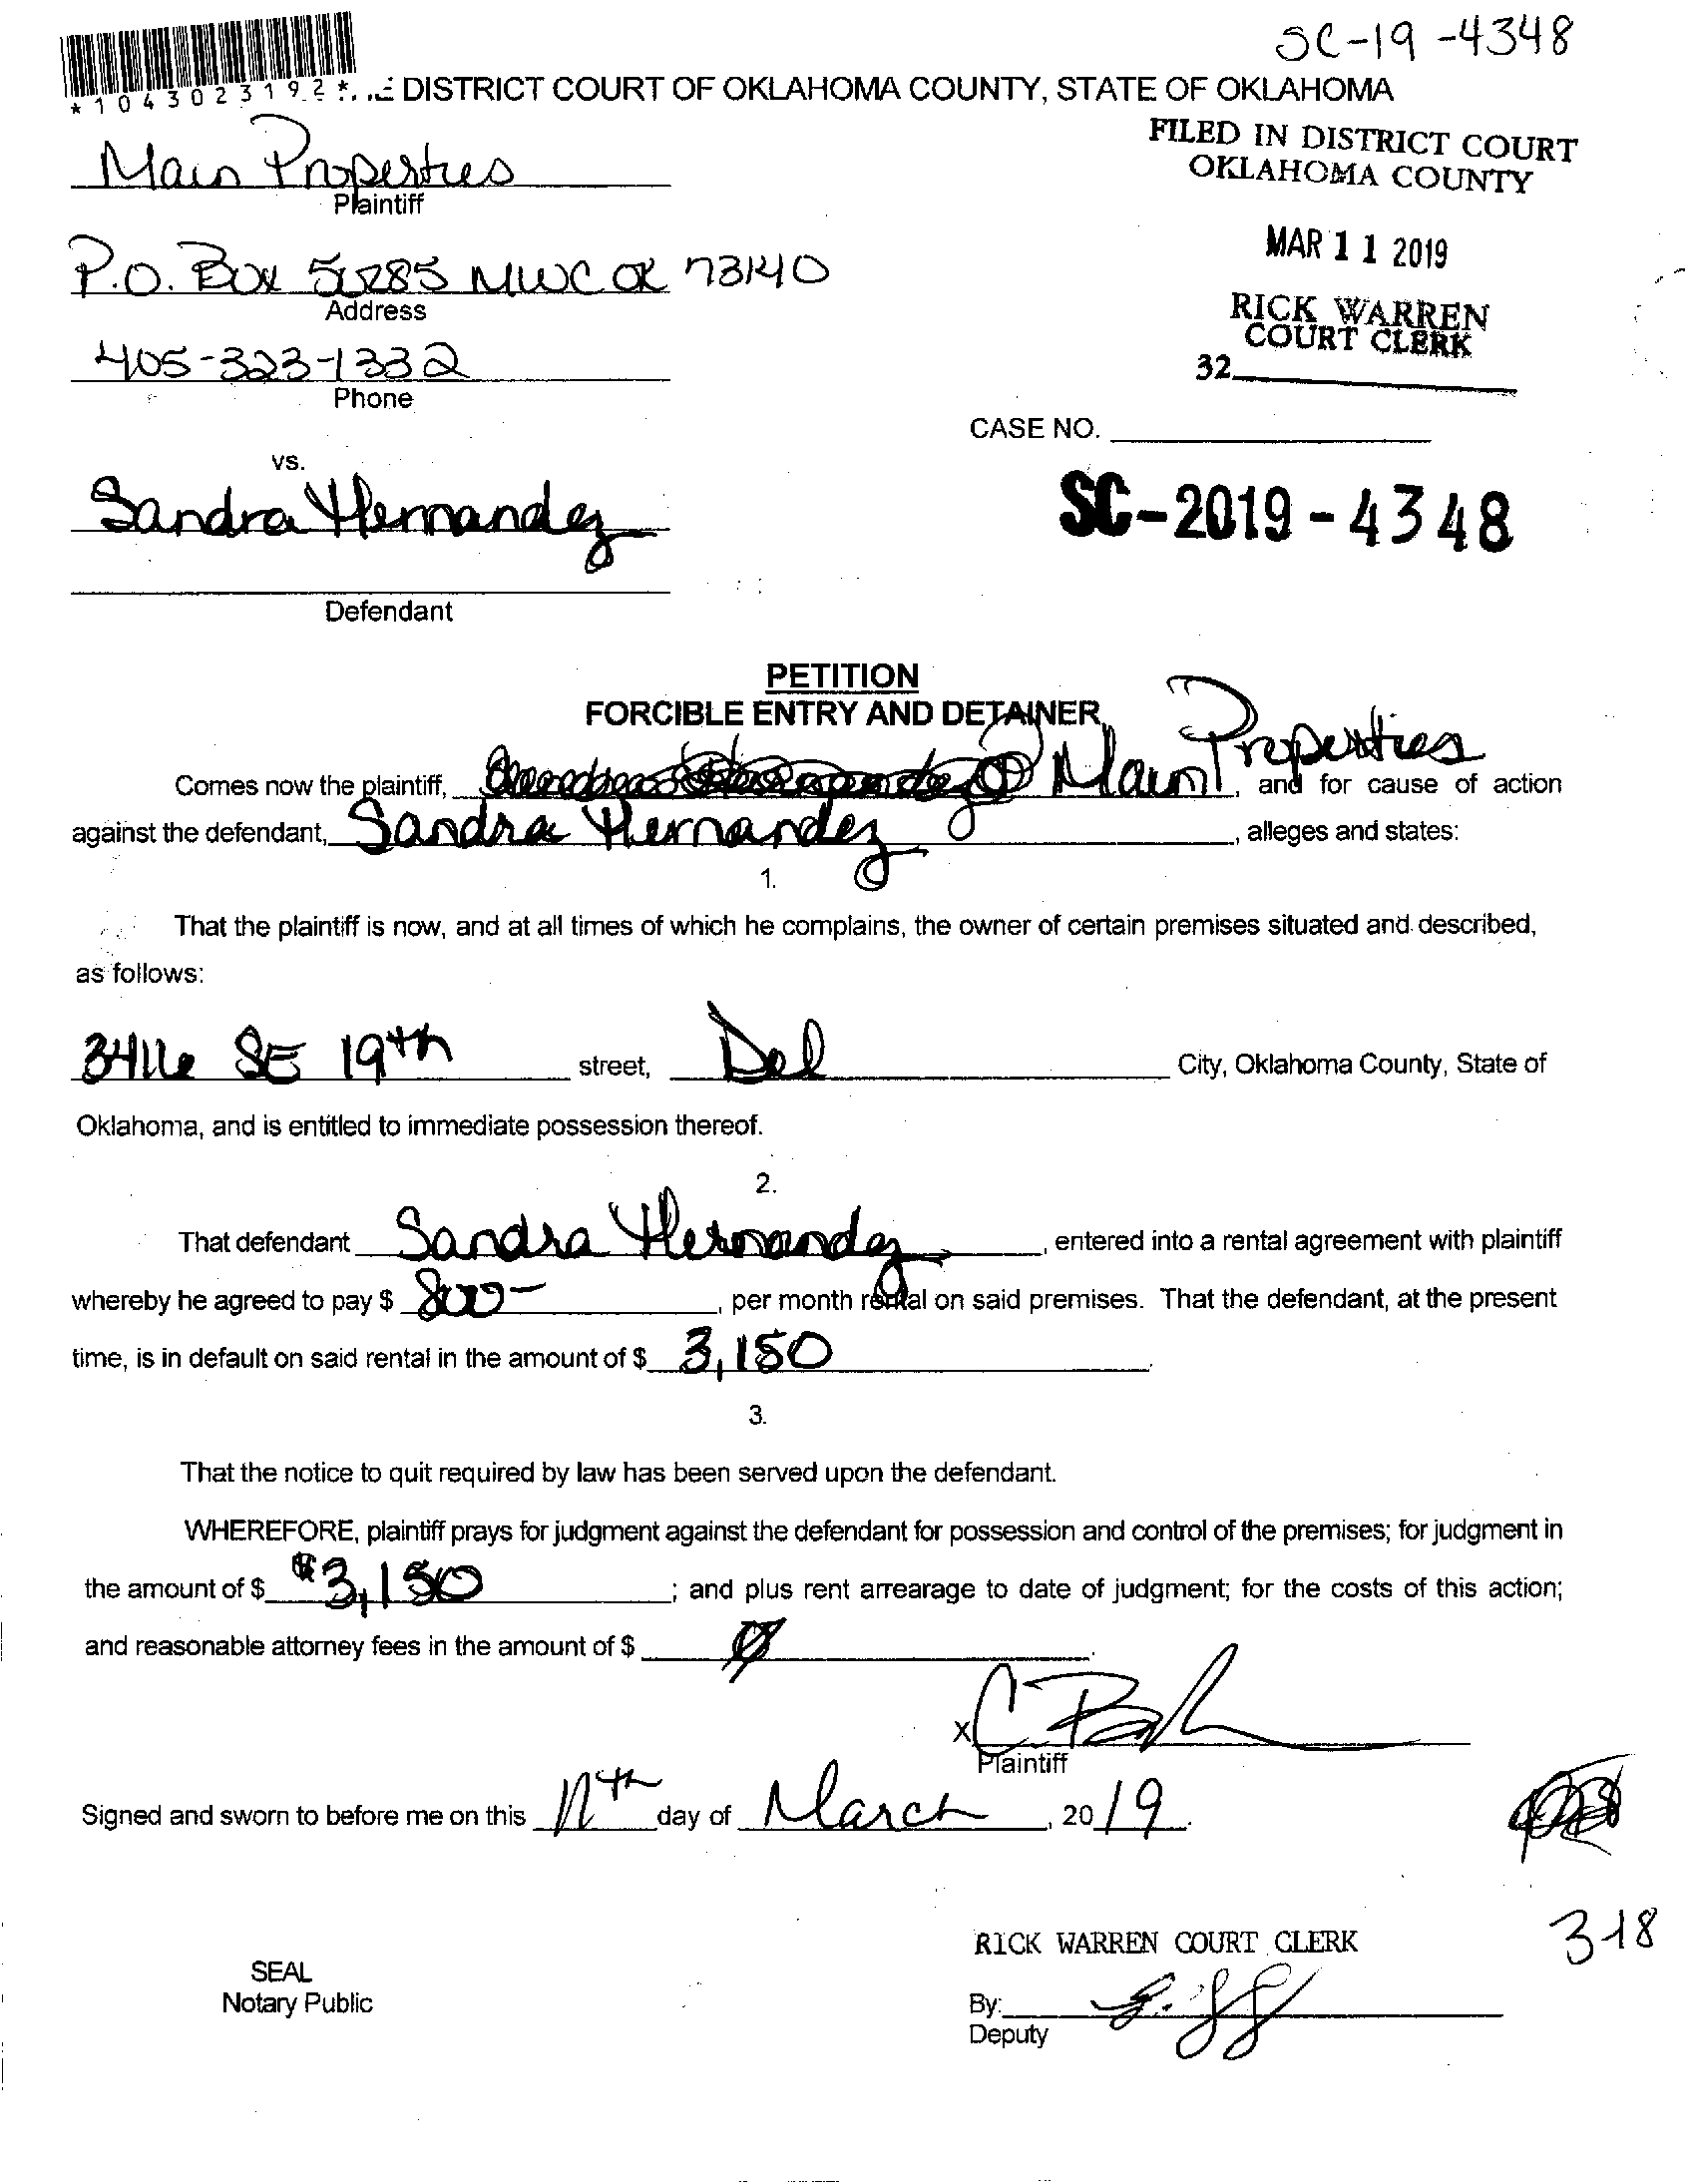 SC-19-4348
*1043023192*
DISTRICT COURT OF OKLAHOMA COUNTY, STATE OF OKLAHOMA
FILED IN DISTRICT COURT
OKLAHOMA COUNTY
Main Properties
Plaintiff
MAR 11 2019
P.O. Box MWC OK 73140
Address
RICK WARREN
COURT CLERK
405-323-1332
32
Phone
CASE NO.
vs.
Sandra Hernandez
SC-2019-4348
Defendant
PETITION
FORCIBLE ENTRY AND DETAINER
Comes now the plaintiff, Main Properties, and for cause of action
against the defendant, Sandra Hernandez, alleges and states:
1.
That the plaintiff is now, and at all times of which he complains, the owner of certain premises situated and described,
as follows:
3416 SE 19th street, Del City, Oklahoma County, State of
Oklahoma, and is entitled to immediate possession thereof.
2.
That defendant Sandra Hernandez, entered into a rental agreement with plaintiff
whereby he agreed to pay $ 800-, per month rental on said premises. That the defendant, at the present
time, is in default on said rental in the amount of $ 3,150.
3.
That the notice to quit required by law has been served upon the defendant.
WHEREFORE, plaintiff prays for judgment against the defendant for possession and control of the premises; for judgment in
the amount of $ $3,150; and plus rent arrearage to date of judgment; for the costs of this action;
and reasonable attorney fees in the amount of $ 0.
X
Plaintiff
Signed and sworn to before me on this 11th day of March, 2019.
RICK WARREN COURT CLERK
3-18
SEAL
Notary Public
By:
Deputy